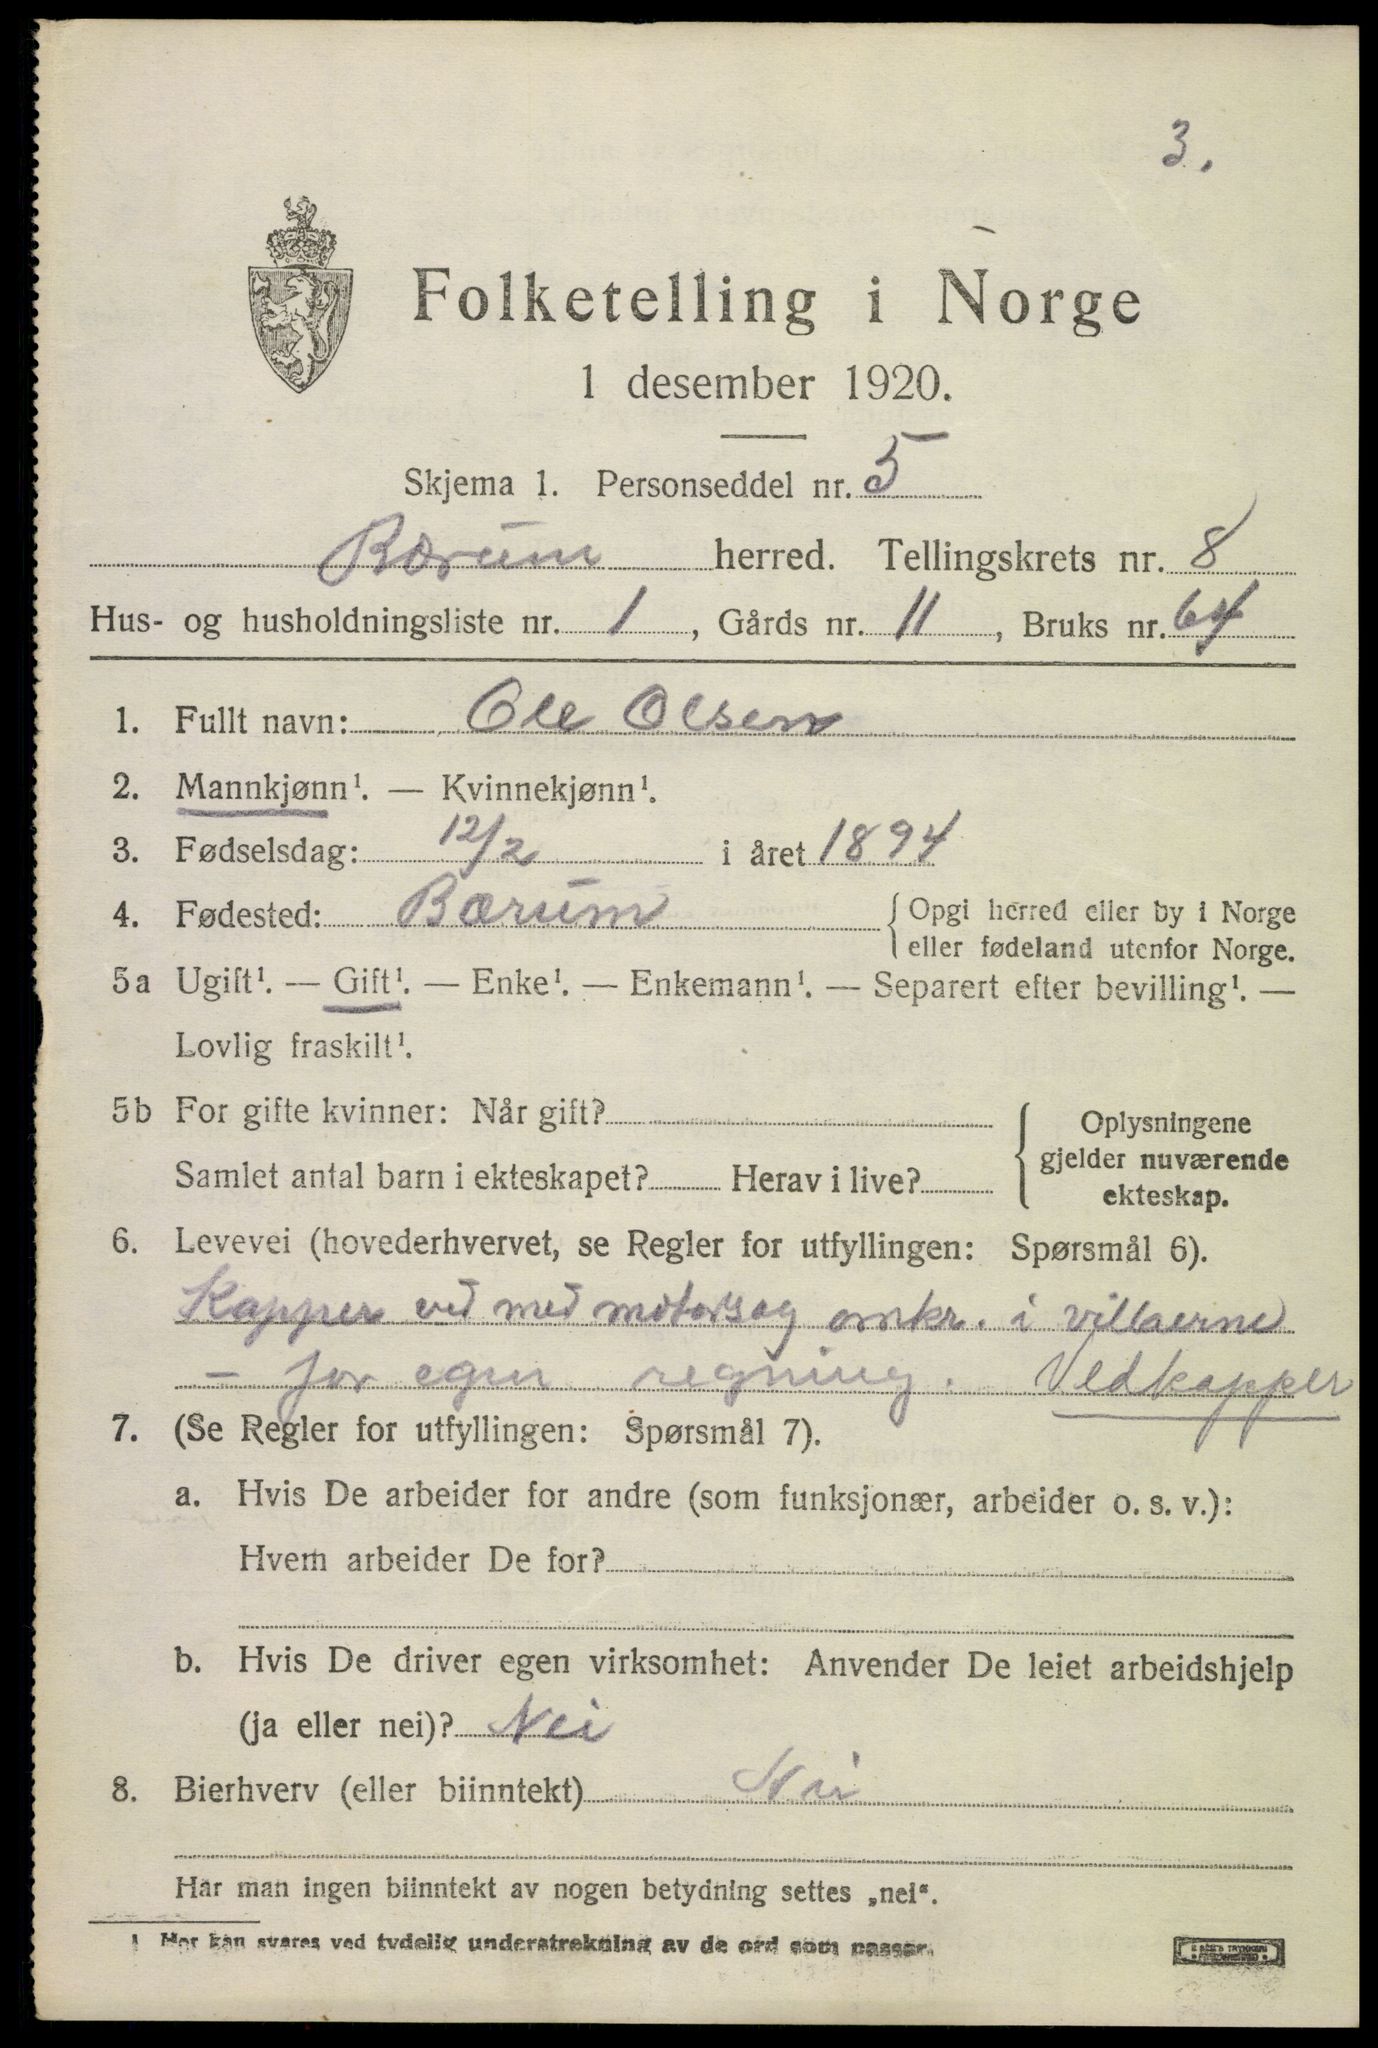 3.
Folketelling i Norge
1 desember 1920.
Skjema 1. Personseddel nr. 5
Bærum herred. Tellingskrets nr. 8
Hus- og husholdningsliste nr. 1, Gårds nr. 11, Bruks nr. 64
1. Fullt navn: Ole Olsen
2. Mannkjønn¹. — Kvinnekjønn¹.
3. Fødselsdag: 12/2 i året 1894
4. Fødested: Bærum {Opgi herred eller by i Norge
eller fødeland utenfor Norge.
5a Ugift¹. — Gift¹. — Enke¹. — Enkemann¹. — Separert efter bevilling¹. —
Lovlig fraskilt¹.
5b For gifte kvinner: Når gift?
Samlet antal barn i ekteskapet? Herav i live?
{Oplysningene
gjelder nuværende
ekteskap.
6. Levevei (hovederhvervet, se Regler for utfyllingen: Spørsmål 6).
Kapper ved med motorsag omkr. i villaerne
- for egen regning. Vedkapper
7. (Se Regler for utfyllingen: Spørsmål 7).
a. Hvis De arbeider for andre (som funksjonær, arbeider o. s. v.):
Hvem arbeider De for?
b. Hvis De driver egen virksomhet: Anvender De leiet arbeidshjelp
(ja eller nei)? Nei
8. Bierhverv (eller biinntekt) Nei
Har man ingen biinntekt av nogen betydning settes „nei“.
1 Her kan svares ved tydelig understrekning av de ord som passer.